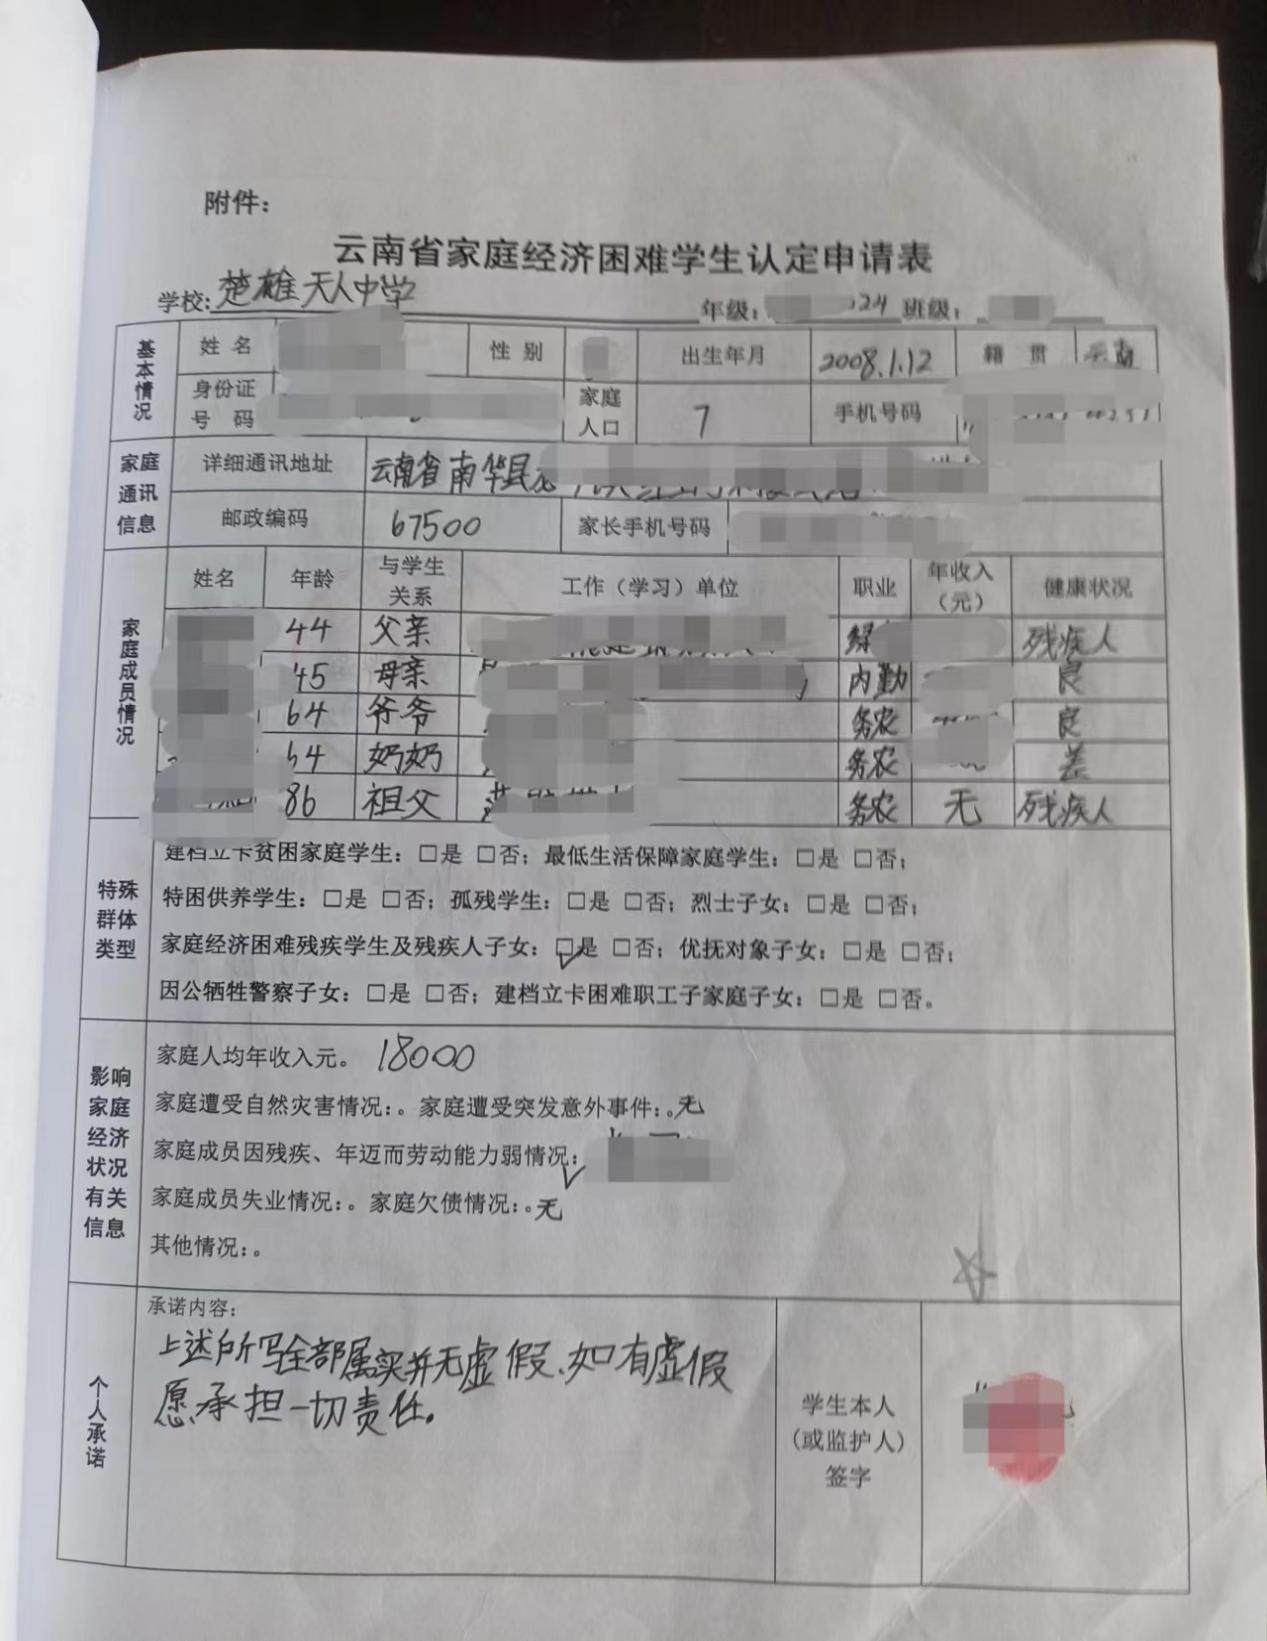 附件：
云南省家庭经济困难学生认定申请表
学校：楚雄天人中学 年级： 24 班级：
基本情况 姓名 性别 出生年月 2008.1.12 籍贯 云南
身份证号码 家庭人口 7 手机号码
家庭通讯信息 详细通讯地址 云南省南华县
邮政编码 67500 家长手机号码
家庭成员情况 姓名 年龄 与学生关系 工作（学习）单位 职业 年收入（元） 健康状况
44 父亲 残疾人
45 母亲 内勤 良
64 爷爷 务农 良
64 奶奶 务农 差
86 祖父 务农 无 残疾人
特殊群体类型
建档立卡贫困家庭学生：□是 □否；最低生活保障家庭学生：□是 □否；
特困供养学生：□是 □否；孤残学生：□是 □否；烈士子女：□是 □否；
家庭经济困难残疾学生及残疾人子女：□是 □否；优抚对象子女：□是 □否；
因公牺牲警察子女：□是 □否；建档立卡困难职工子家庭子女：□是 □否。
影响家庭经济状况有关信息
家庭人均年收入元。18000
家庭遭受自然灾害情况：。家庭遭受突发意外事件：。无
家庭成员因残疾、年迈而劳动能力弱情况：
家庭成员失业情况：。家庭欠债情况：。无
其他情况：。
个人承诺
承诺内容：
上述所写全部属实并无虚假.如有虚假
愿承担一切责任。
学生本人
（或监护人）
签字